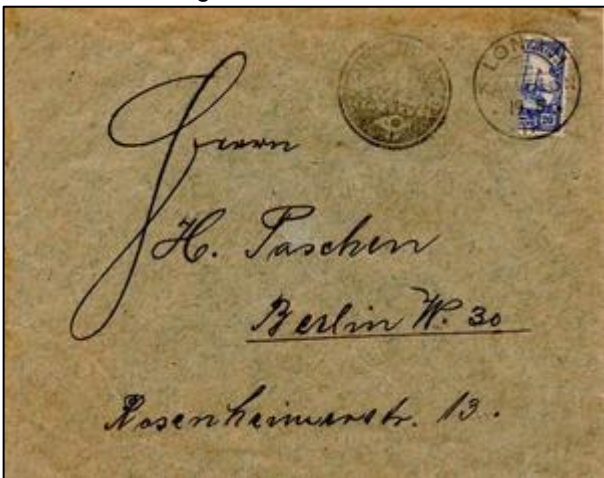 LON
Herrn
H. Paschen
Berlin W. 30
Rosenheimerstr. 13.